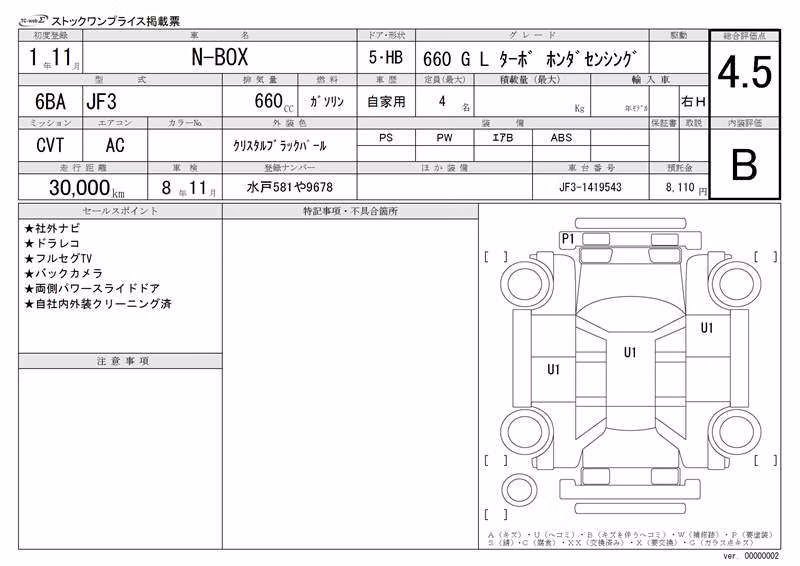 TC-webΣ ストックワンプライス掲載票
初度登録 車名 ドア・形状 グレード 駆動 総合評価点
1年11月 N-BOX 5・HB 660 G L ターボ ホンダセンシング 4.5
型式 排気量 燃料 車歴 定員(最大) 積載量(最大) 輸入車
6BA JF3 660CC ガソリン 自家用 4名 Kg 年モデル 右H
ミッション エアコン カラーNo. 外装色 装備 保証書 取説 内装評価
CVT AC クリスタルブラックパール PS PW エアB ABS B
走行距離 車検 登録ナンバー ほか装備 車台番号 預託金
30,000km 8年11月 水戸581や9678 JF3-1419543 8,110円
セールスポイント 特記事項・不具合箇所
★社外ナビ
★ドラレコ
★フルセグTV
★バックカメラ
★両側パワースライドドア
★自社内外装クリーニング済
注意事項
P1
[ ] [ ]
U1
U1
U1
[ ] [ ]
[ ]
A(キズ)・U(ヘコミ)・B(キズを伴うヘコミ)・W(補修跡)・P(要塗装)
S(錆)・C(腐食)・XX(交換済み)・X(要交換)・G(ガラス点キズ)
ver. 00000002